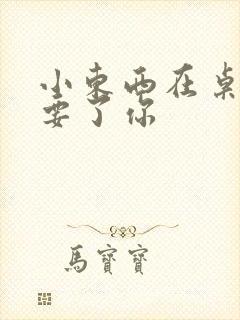 小東西在桌
要了你
馬寶寶